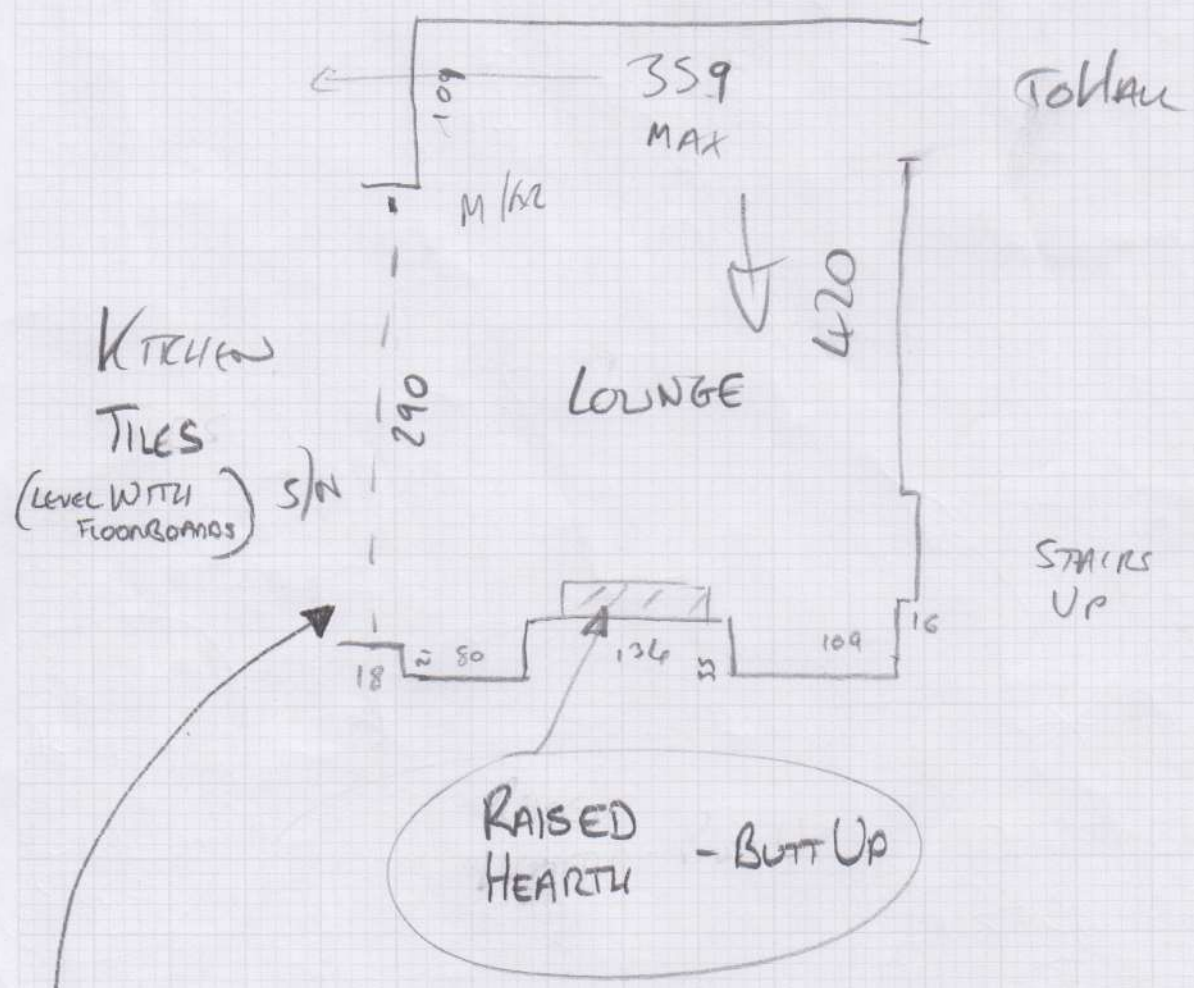 359
MAX
109
TO HALL
M/R
420
KITCHEN
TILES
(LEVEL WITH
FLOORBOARDS)
S/N
290
LOUNGE
STAIRS
UP
16
18
80
134
33
109
RAISED
HEARTH
- BUTT UP